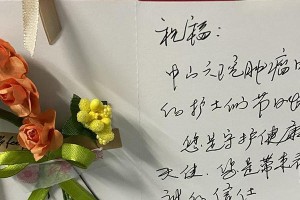 祝福：
中山六院肿瘤内
的护士们节日快
您是守护健康
天使，您是带来希
的信任